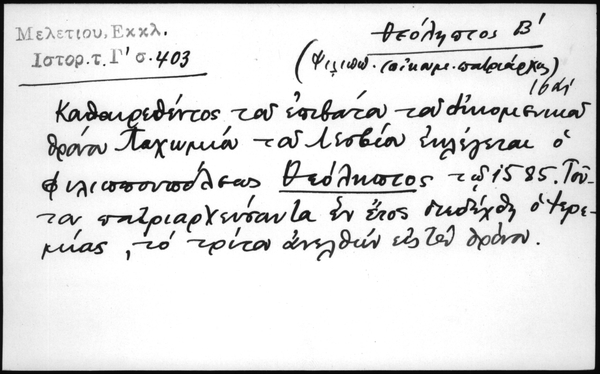 Μελετίου, Εκκλ.
Ιστορ.τ. Γ' σ. 403
Θεόληπτος Β'
(Φιλιππ. οἰκουμ. πατριάρχης)
16 αἰ
Καθαιρεθέντος τοῦ ἐπιβάτου τοῦ οἰκουμενικοῦ
θρόνου Παχωμίου τοῦ Λεσβίου ἐκλέγεται ὁ
Φιλιππουπόλεως Θεόληπτος τῷ 1585. Τού-
του πατριαρχεύσαντα ἓν ἔτος διεδέχθη ὁ Ἱερε-
μίας, τὸ τρίτον ἀνελθὼν εἰς τὸν θρόνον.